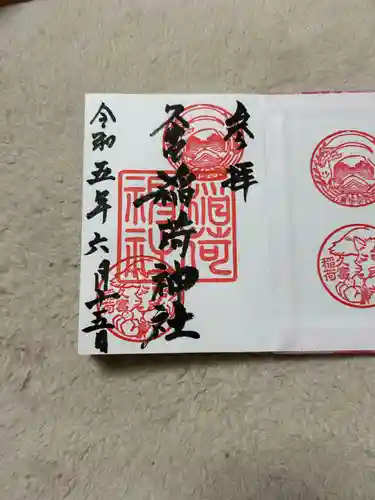 参拝
稲荷神社
令和五年六月十五日
稲荷
神社
稲荷